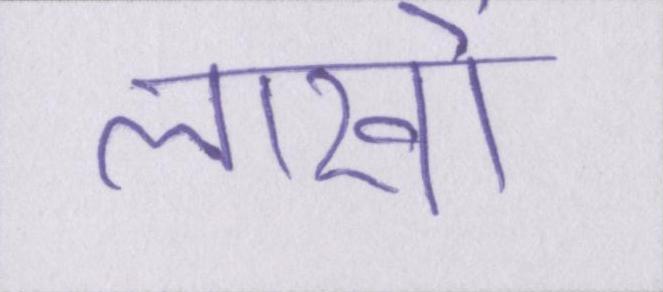 लाखों